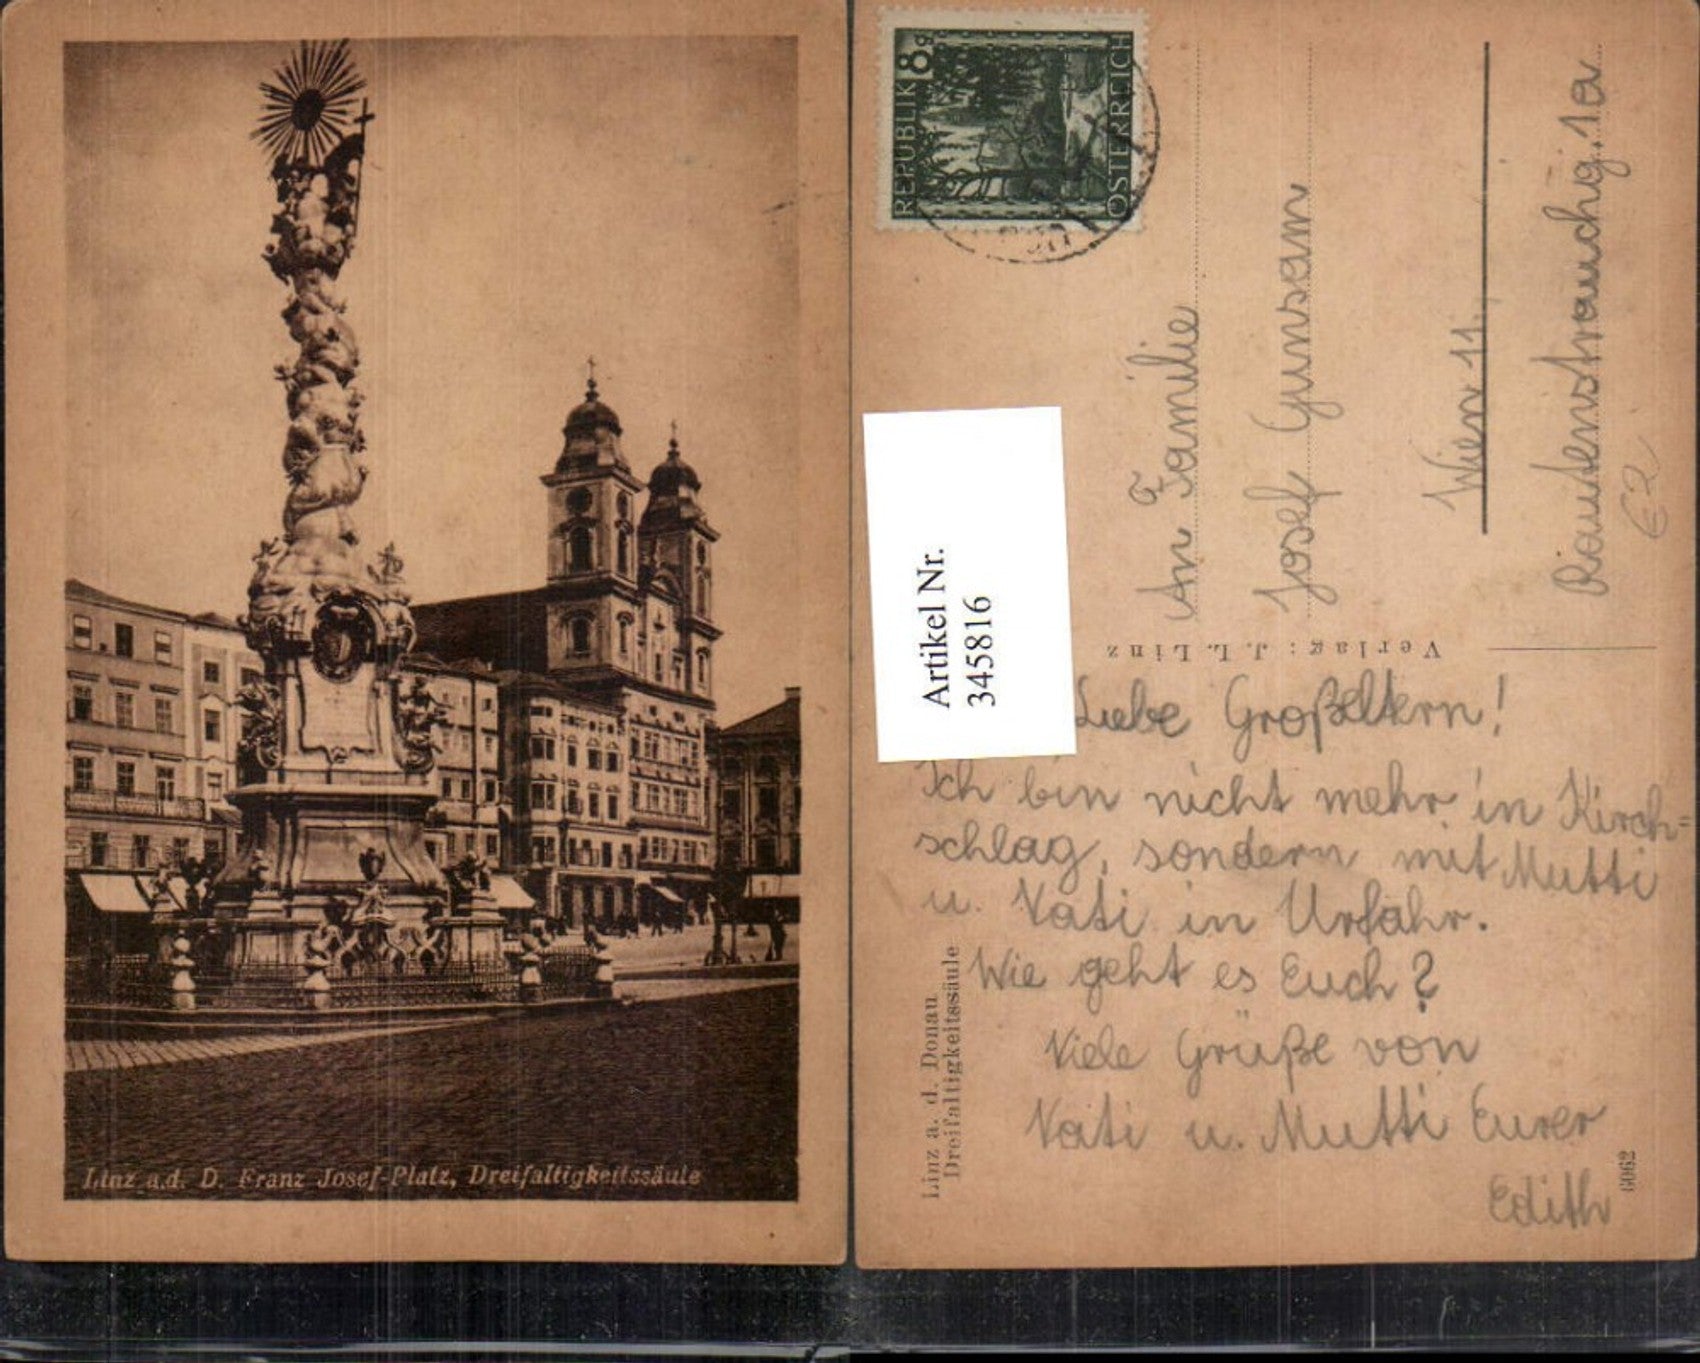 Linz a.d. D. Franz Josef-Platz, Dreifaltigkeitssäule
REPUBLIK 8g
ÖSTERREICH
An Familie
Josef Gunsam
Wien 11.
1a
€2
Artikel Nr.
3458816
Verlag: J. L. Linz
Liebe Großeltern!
Ich bin nicht mehr in Kirch=
schlag, sondern mit Mutti
u. Vati in Urfahr.
Wie geht es Euch?
Viele Grüße von
Vati u. Mutti Eurer
Edith
Linz a. d. Donau
Dreifaltigkeitssäule
6062